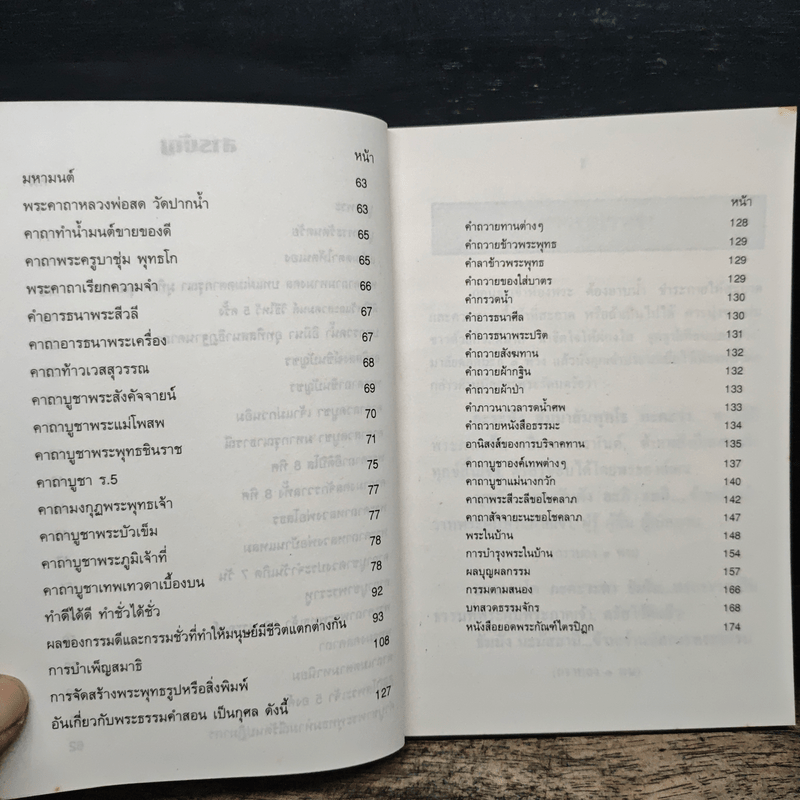 หน้า
มหามนต์ 63
พระคาถาหลวงพ่อสด วัดปากน้ำ 63
คาถาทำน้ำมนต์ขายของดี 65
คาถาพระครูบาชุ่ม พุทธโก 65
พระคาถาเรียกความจำ 66
คำอารธนาพระสีวลี 67
คาถาอารธนาพระเครื่อง 67
คาถาท้าวเวสสุวรรณ 68
คาถาบูชาพระสังคัจจายน์ 69
คาถาบูชาพระแม่โพสพ 70
คาถาบูชาพระพุทธชินราช 71
คาถาบูชา ร.5 75
คาถามงกุฎพระพุทธเจ้า 77
คาถาบูชาพระบัวเข็ม 77
คาถาบูชาพระภูมิเจ้าที่ 78
คาถาบูชาเทพเทวดาเบื้องบน 78
ทำดีได้ดี ทำชั่วได้ชั่ว 92
ผลของกรรมดีและกรรมชั่วที่ทำให้มนุษย์มีชีวิตแตกต่างกัน 93
การบำเพ็ญสมาธิ 108
การจัดสร้างพระพุทธรูปหรือสิ่งพิมพ์
อันเกี่ยวกับพระธรรมคำสอน เป็นกุศล ดังนี้ 127
หน้า
คำถวายทานต่างๆ 128
คำถวายข้าวพระพุทธ 129
คำลาข้าวพระพุทธ 129
คำถวายของใส่บาตร 129
คำกรวดน้ำ 130
คำอารธนาศีล 130
คำอารธนาพระปริต 131
คำถวายสังฆทาน 132
คำถวายผ้ากฐิน 132
คำถวายผ้าป่า 133
คำภาวนาเวลารดน้ำศพ 133
คำถวายหนังสือธรรมะ 134
อานิสงส์ของการบริจาคทาน 135
คาถาบูชาองค์เทพต่างๆ 137
คาถาบูชาแม่นางกวัก 140
คาถาพระสีวะลีขอโชคลาภ 142
คาถาสัจจายะนะขอโชคลาภ 147
พระในบ้าน 148
การบำรุงพระในบ้าน 154
ผลบุญผลกรรม 157
กรรมตามสนอง 166
บทสวดธรรมจักร 168
หนังสือยอดพระกัณฑ์ไตรปิฎก 174